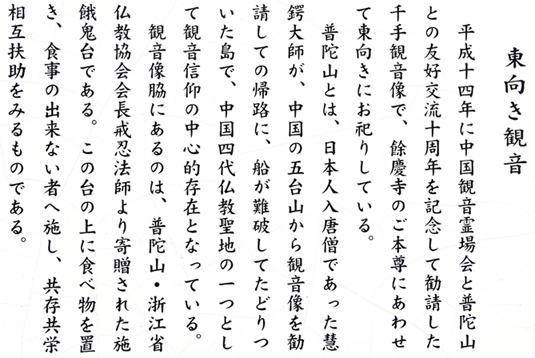 東向き観音
平成十四年に中国観音霊場会と普陀山
との友好交流十周年を記念して勧請した
千手観音像で、餘慶寺のご本尊にあわせ
て東向きにお祀りしている。
普陀山とは、日本人入唐僧であった慧
鍔大師が、中国の五台山から観音像を勧
請しての帰路に、船が難破してたどりつ
いた島で、中国四代仏教聖地の一つとし
て観音信仰の中心的存在となっている。
観音像脇にあるのは、普陀山・浙江省
仏教協会会長戒忍法師より寄贈された施
餓鬼台である。この台の上に食べ物を置
き、食事の出来ない者へ施し、共存共栄
相互扶助をみるものである。